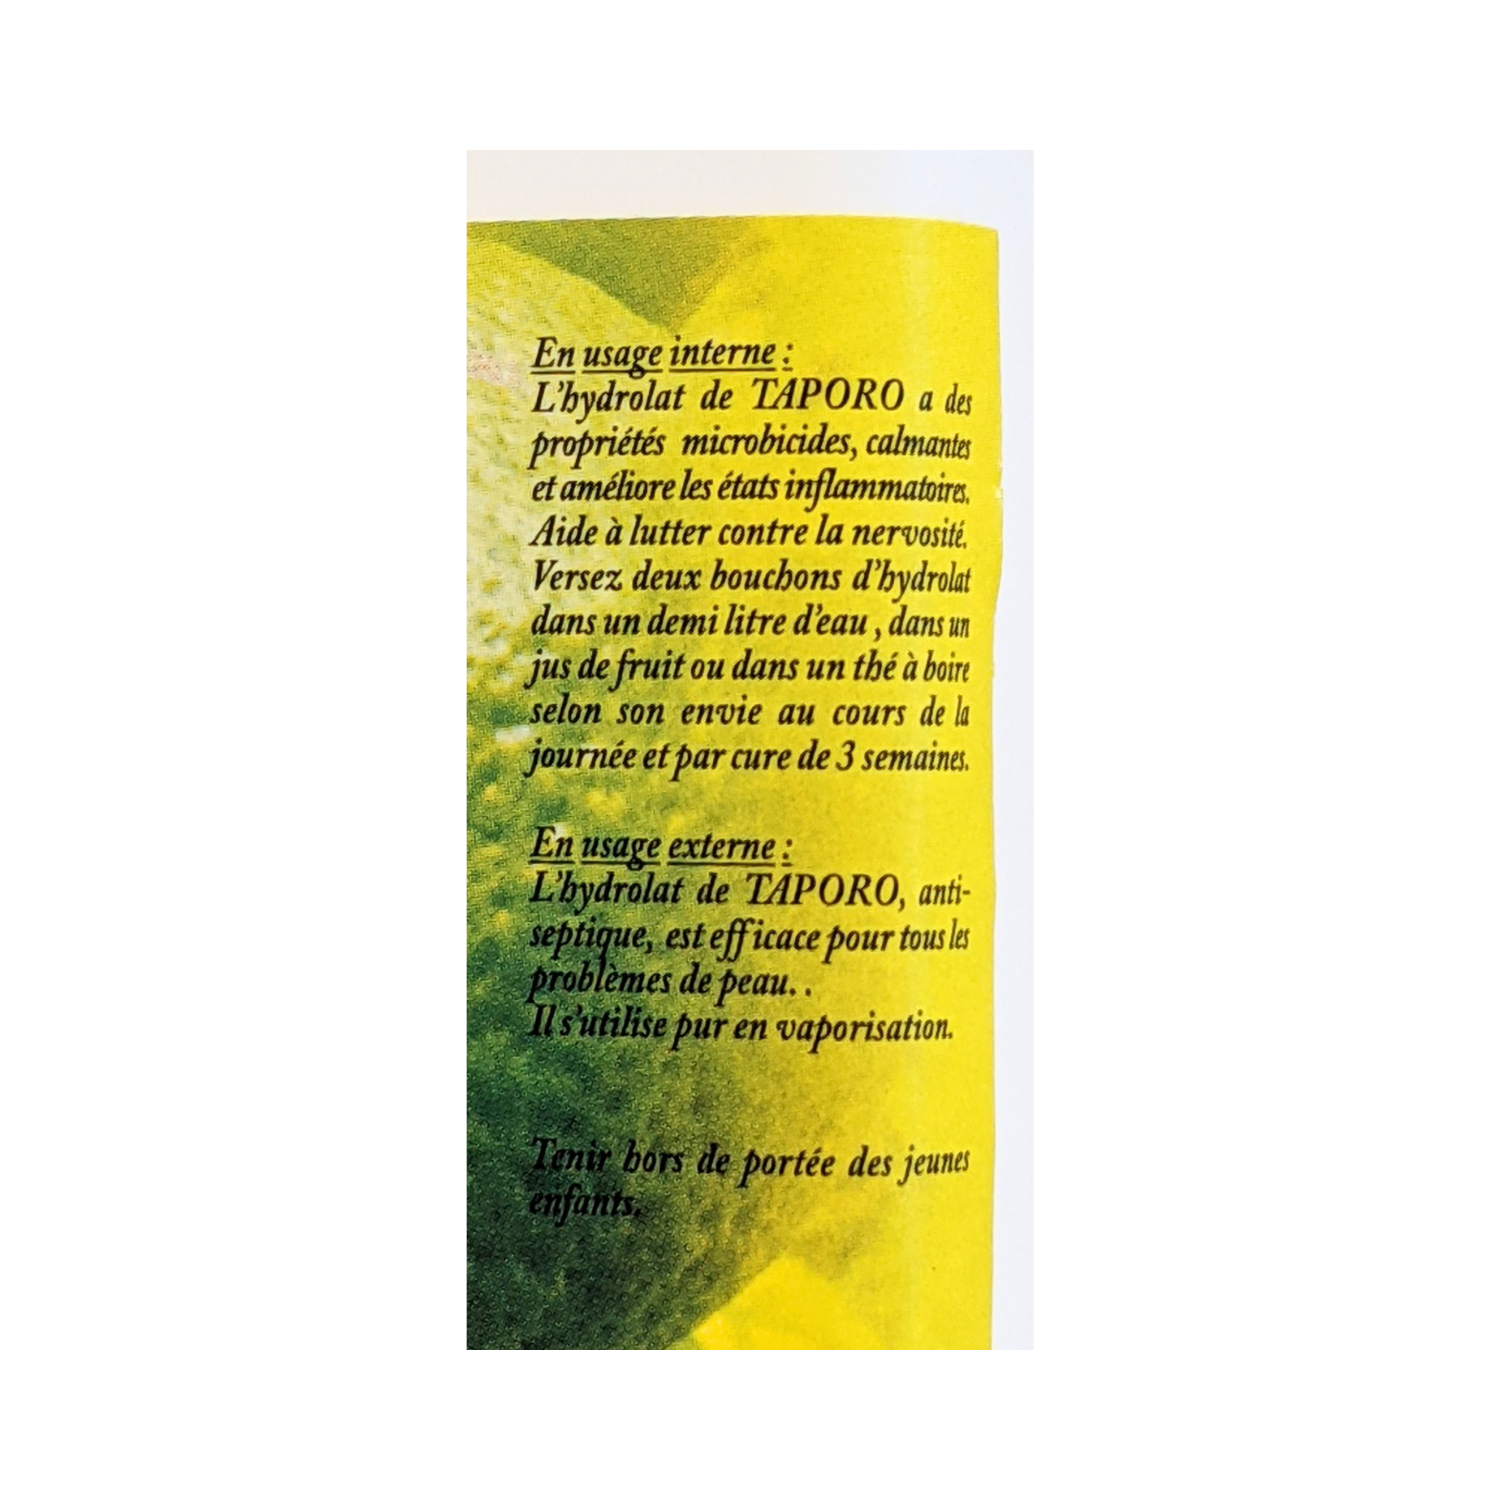 En usage interne :
L'hydrolat de TAPORO a des
propriétés microbicides, calmantes
et améliore les états inflammatoires.
Aide à lutter contre la nervosité.
Versez deux bouchons d'hydrolat
dans un demi litre d'eau , dans un
jus de fruit ou dans un thé à boire
selon son envie au cours de la
journée et par cure de 3 semaines.
En usage externe :
L'hydrolat de TAPORO, anti-
septique, est efficace pour tous les
problèmes de peau. .
Il s'utilise pur en vaporisation.
Tenir hors de portée des jeunes
enfants.